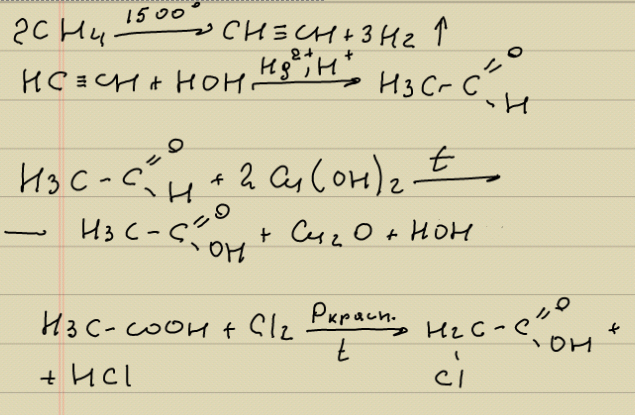 2CH₄ —1500°→ CH≡CH + 3H₂ ↑
HC≡CH + HOH —Hg²⁺, H⁺→ H₃C-C(=O)-H
H₃C-C(=O)-H + 2Cu(OH)₂ —t→
— H₃C-C(=O)-OH + Cu₂O + HOH
H₃C-COOH + Cl₂ —Pкрасн., t→ H₂C(Cl)-C(=O)-OH +
+ HCl